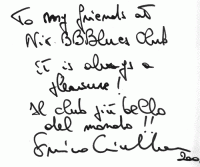 To my friends at
Nix BBBlues Club
it is always a
pleasure!
Il club più bello
del mondo!!